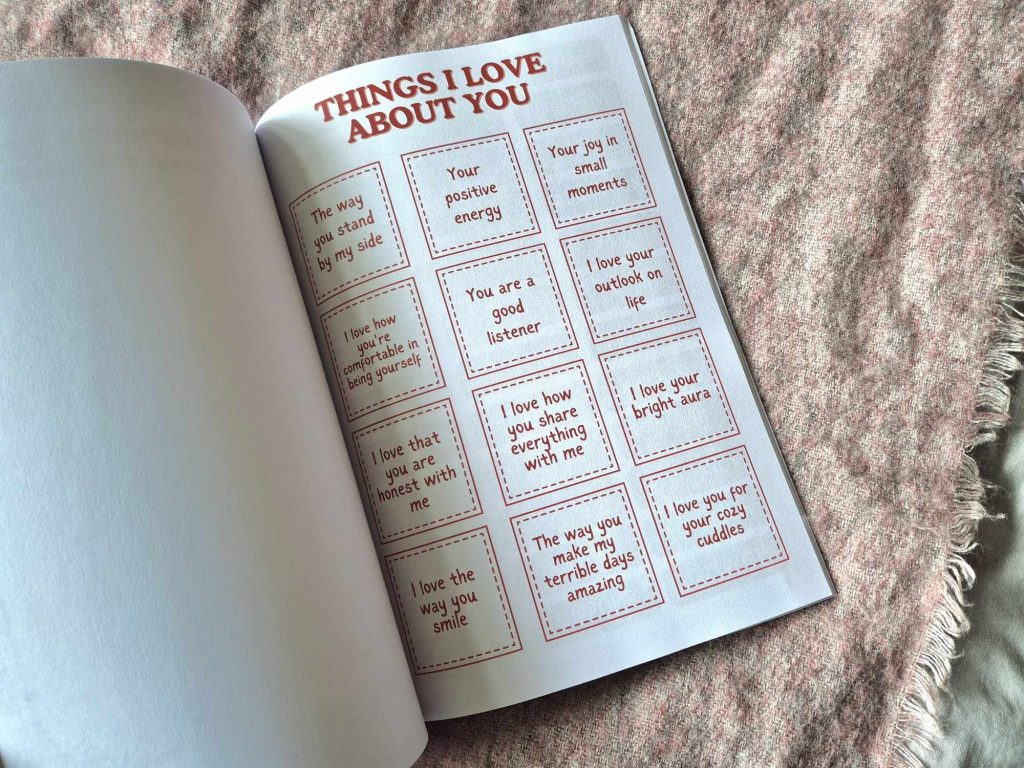 THINGS I LOVE
ABOUT YOU
The way
you stand
by my side
Your
positive
energy
Your joy in
small
moments
I love how
you're
comfortable in
being yourself
You are a
good
listener
I love your
outlook on
life
I love that
you are
honest with
me
I love how
you share
everything
with me
I love your
bright aura
I love the
way you
smile
The way you
make my
terrible days
amazing
I love you for
your cozy
cuddles